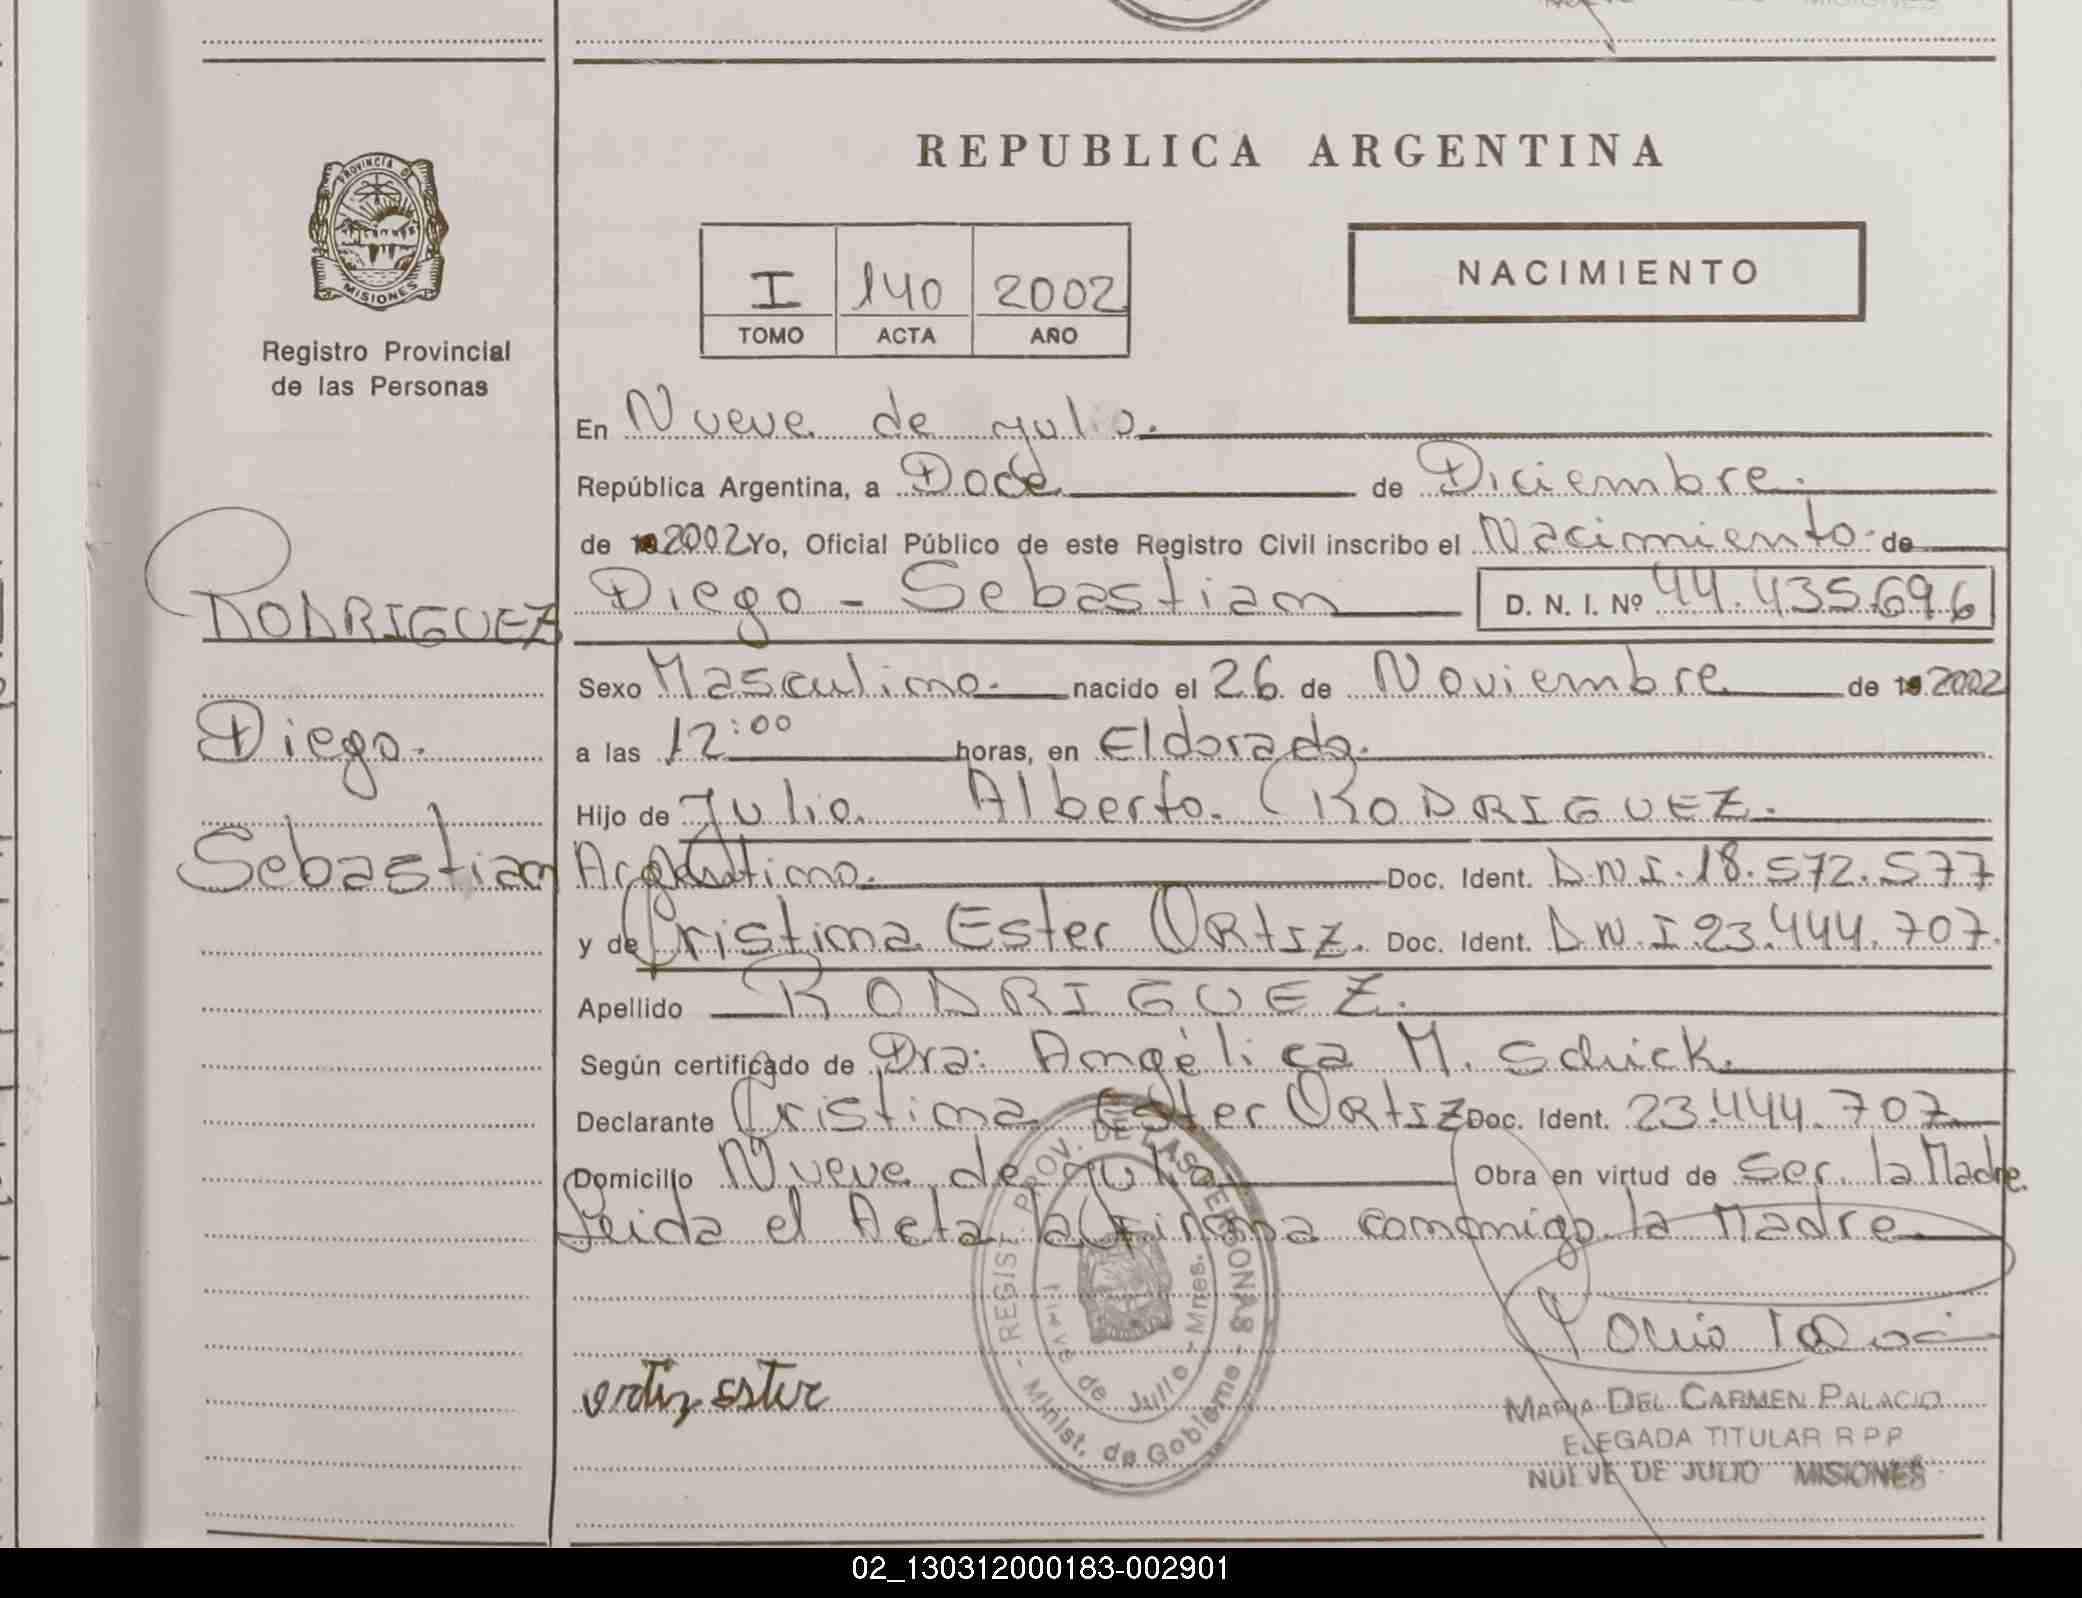 REPUBLICA ARGENTINA
PROVINCIA DE MISIONES
Registro Provincial
de las Personas
I 140 2002
TOMO ACTA AÑO
NACIMIENTO
RODRIGUEZ
Diego.
Sebastian
En Nueve de Julio.
República Argentina, a Doce de Diciembre.
de 2002 Yo, Oficial Público de este Registro Civil inscribo el Nacimiento de
Diego - Sebastian D. N. I. Nº 44.435.696
Sexo Masculino. nacido el 26 de Noviembre de 2002
a las 12:00 horas, en Eldorado.
Hijo de Julio Alberto. RODRIGUEZ.
Argentino. Doc. Ident. DNI. 18.572.577
y de Cristina Ester ORtIZ. Doc. Ident. DNI 23.444.707.
Apellido RODRIGUEZ.
Según certificado de Dra: Angélica M. Schick.
Declarante Cristina Ester ORtIZ Doc. Ident. 23.444.707
Domicilio Nueve de Julio Obra en virtud de Ser la Madre.
Leida el Acta la firma conmigo la Madre
ortiz ester
REGIS. PROV. DE LAS PERSONAS - Minist. de Gobierno -
Nueve de Julio - Mnes.
MARIA DEL CARMEN PALACIO
ELEGADA TITULAR R P P
NUEVE DE JULIO MISIONES
02_130312000183-002901